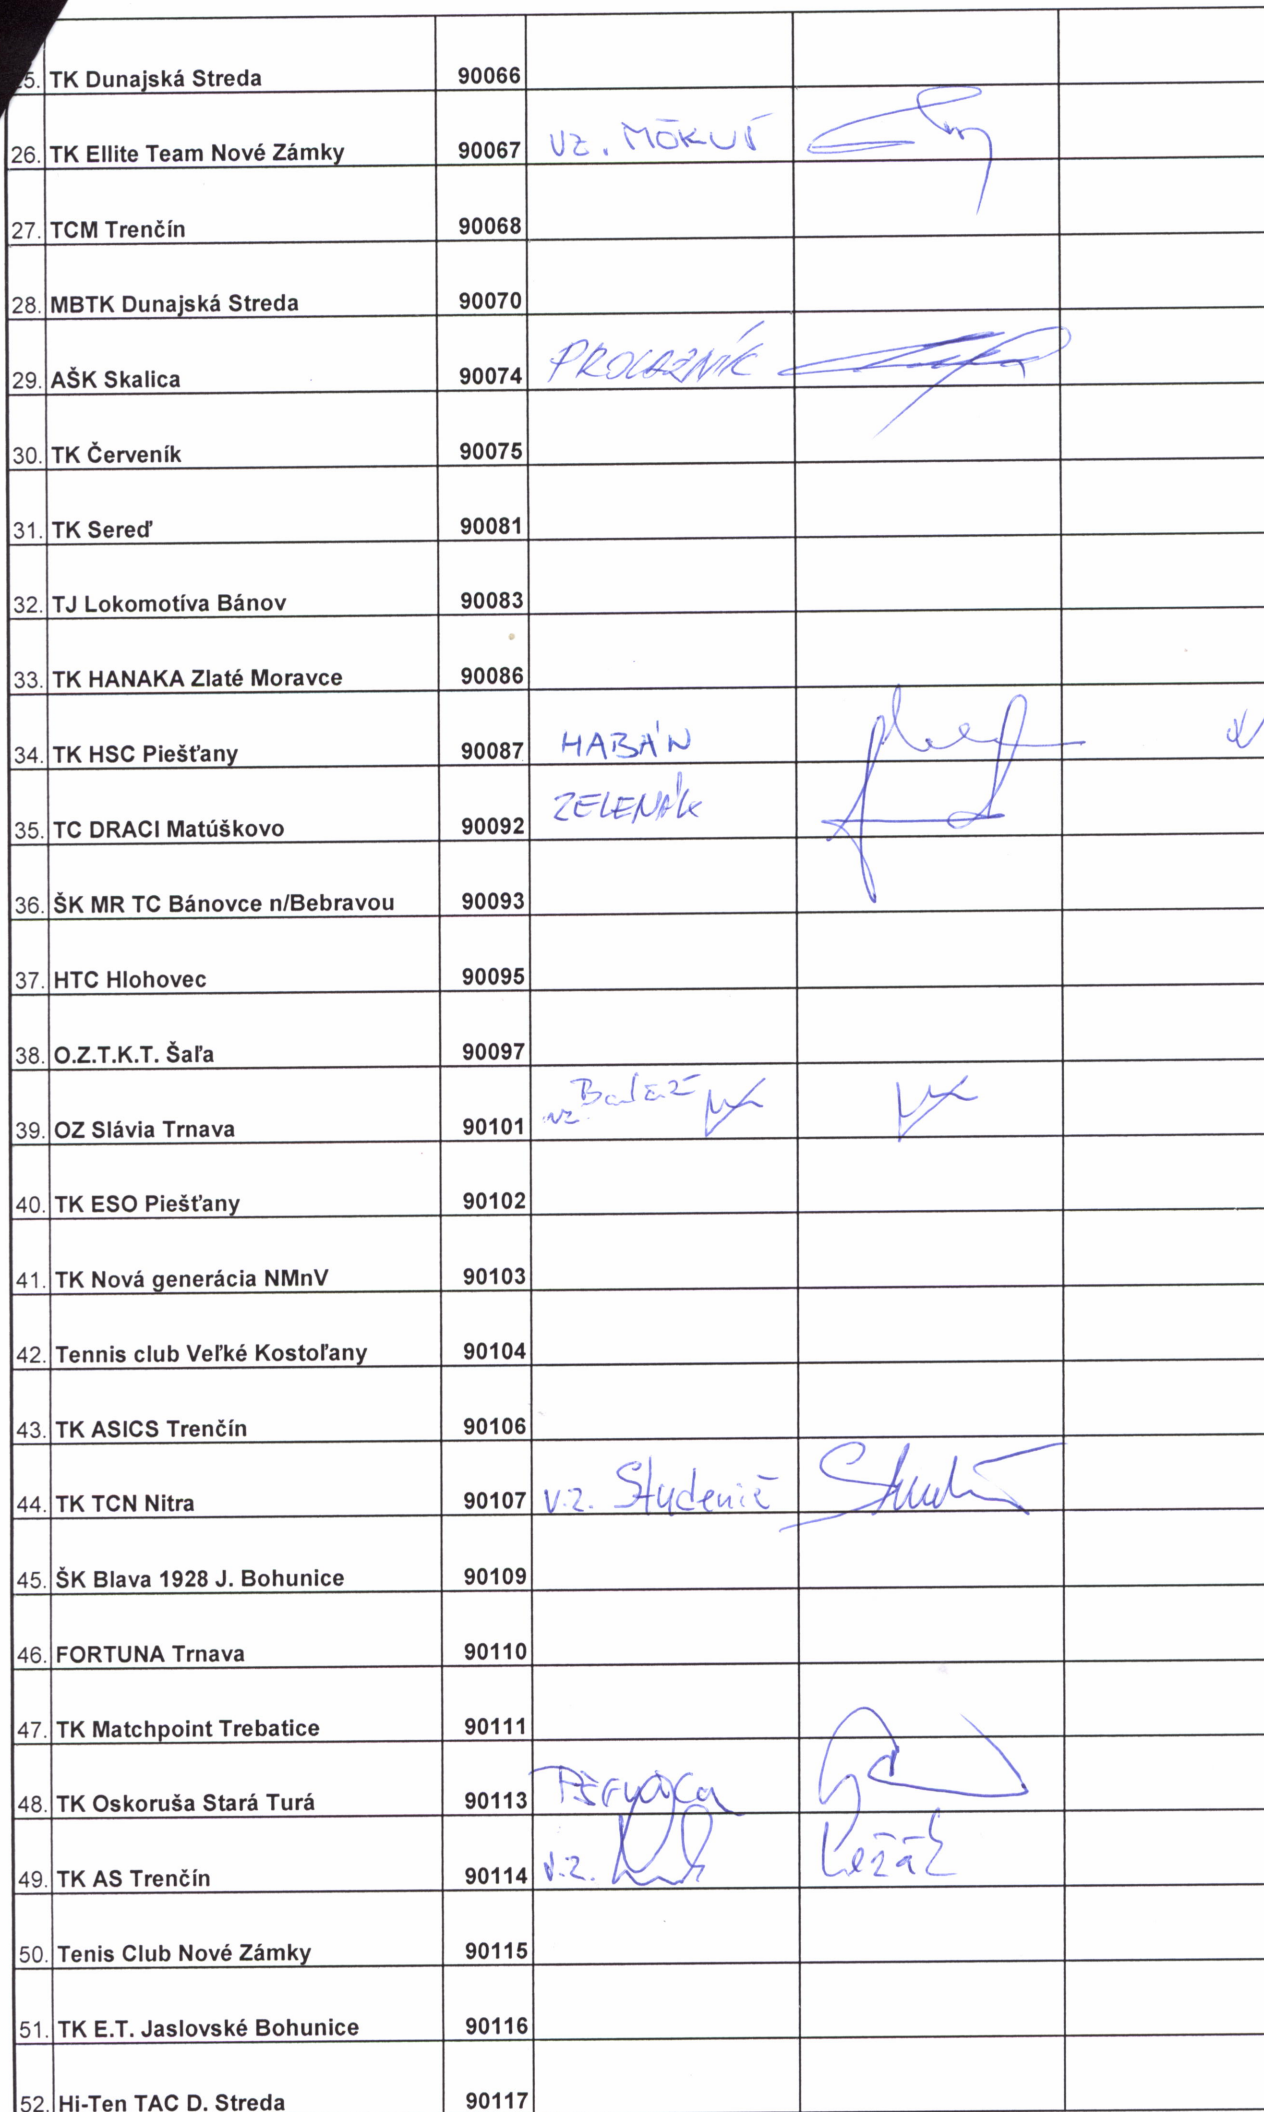 5. TK Dunajská Streda 90066
26. TK Ellite Team Nové Zámky 90067 VZ. MÖKUŠ
27. TCM Trenčín 90068
28. MBTK Dunajská Streda 90070
29. AŠK Skalica 90074 PROCAZNÍK
30. TK Červeník 90075
31. TK Sereď 90081
32. TJ Lokomotíva Bánov 90083
33. TK HANAKA Zlaté Moravce 90086
34. TK HSC Piešťany 90087 HABÁN
35. TC DRACI Matúškovo 90092 ZELENÁK
36. ŠK MR TC Bánovce n/Bebravou 90093
37. HTC Hlohovec 90095
38. O.Z.T.K.T. Šaľa 90097
39. OZ Slávia Trnava 90101 vz. Baláž
40. TK ESO Piešťany 90102
41. TK Nová generácia NMnV 90103
42. Tennis club Veľké Kostoľany 90104
43. TK ASICS Trenčín 90106
44. TK TCN Nitra 90107 v.z. Studenič
45. ŠK Blava 1928 J. Bohunice 90109
46. FORTUNA Trnava 90110
47. TK Matchpoint Trebatice 90111
48. TK Oskoruša Stará Turá 90113
49. TK AS Trenčín 90114 v.z. Ležák
50. Tenis Club Nové Zámky 90115
51. TK E.T. Jaslovské Bohunice 90116
52. Hi-Ten TAC D. Streda 90117